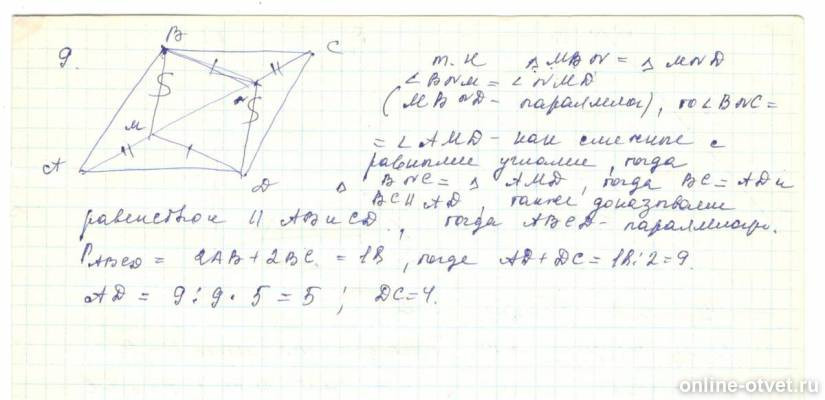 9.
B
C
N
M
A
D
т. к △MBN = △MND
∠BNM = ∠NMD
(MBND - параллелог), то ∠BNC =
= ∠AMD - как смежные с
равными углами, тогда
△ BNC = △ AMD, тогда BC = AD и
BC || AD, также доказываем
равенство и || AB и CD, тогда ABCD - параллелогр.
P ABCD = 2AB + 2BC = 18, тогда AD + DC = 18 : 2 = 9.
AD = 9 : 9 · 5 = 5 ; DC = 4.
online-otvet.ru